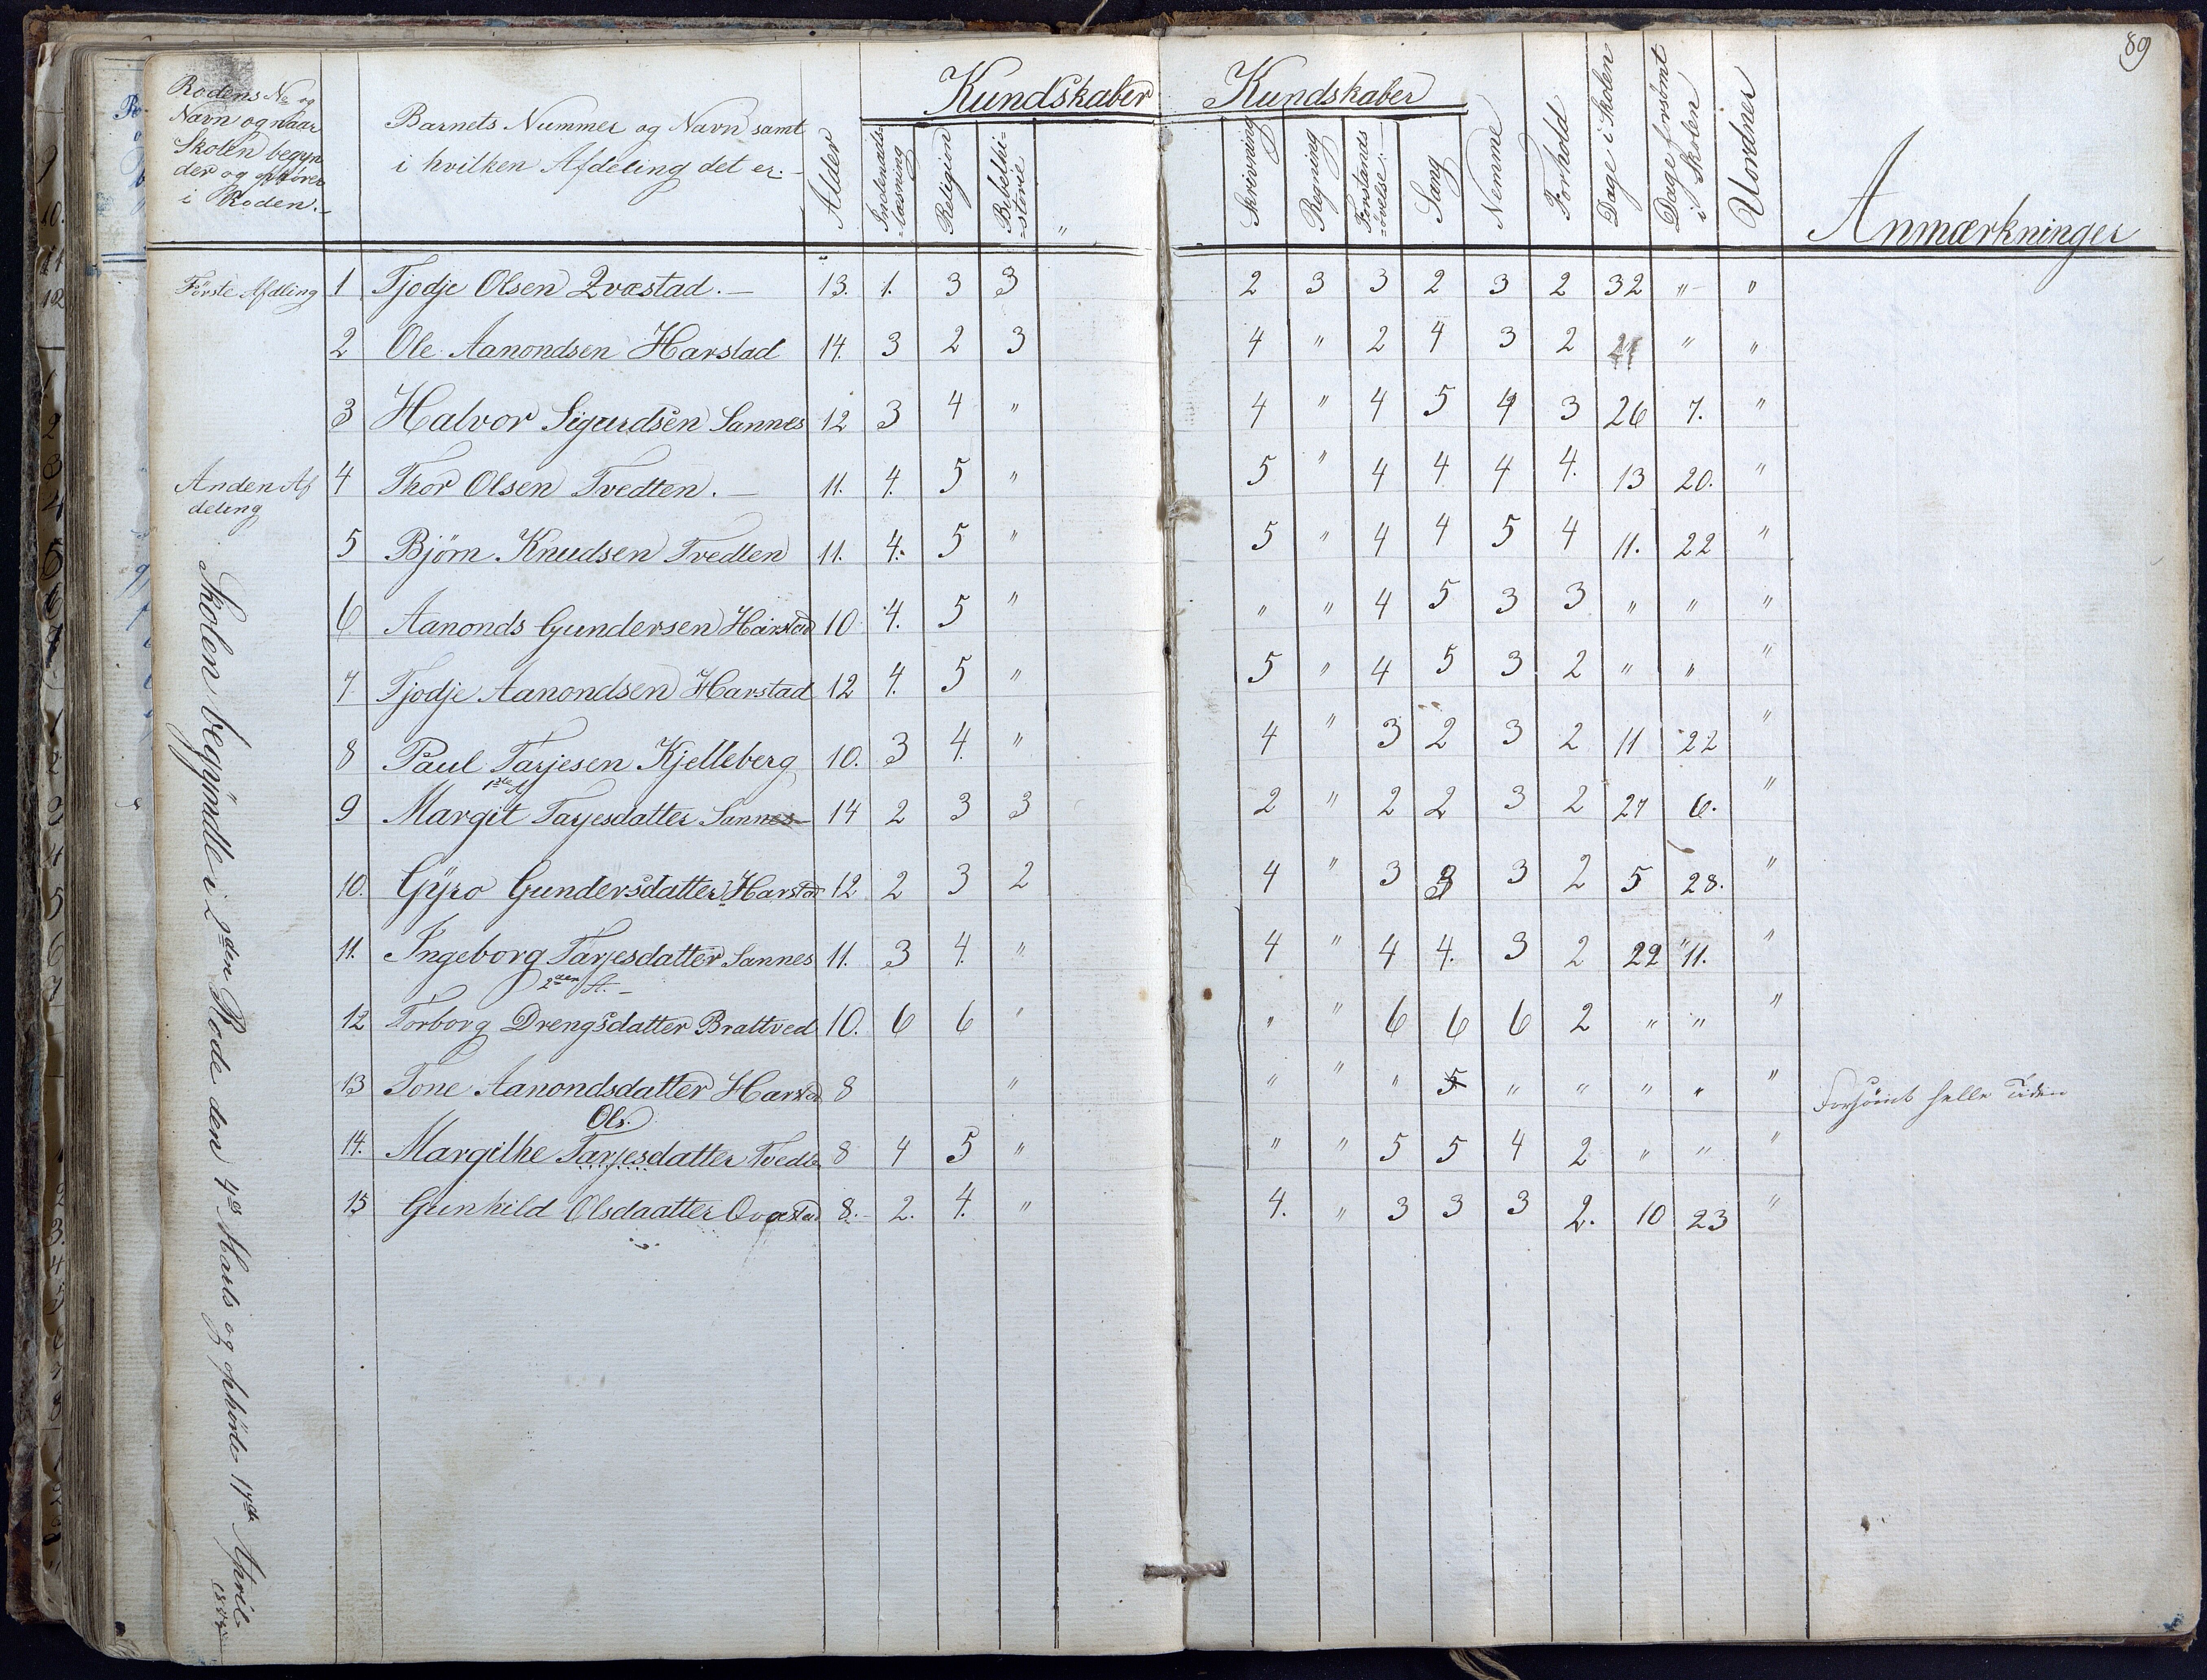 89
Rodens No og
Navn og naar
Skolen begyn
der og ophører
i Roden.-
Barnets Nummer og Navn samt
i hvilken Afdeling det er.-
Alder
Kundskaber
Indenads-
-læsning
Religion
Bibelhi-
-storie
"
Kundskaber
Skrivning
Regning
Forstands
-øvelse.-
Sang
Nemme
Forhold
Dage i Skolen
Dage forsømt
i Skolen
Uordner
Anmærkninger
Første Afdling 1 Tjodje Olsen Qvæstad.- 13. 1. 3 3 2 3 3 2 3 2 32 " "
2 Ole Aanondsen Harstad 14. 3 2 3 4 " 2 4 3 2 " "
3 Halvor Sigurdsen Sannes 12 3 4 " 4 " 4 5 4 3 26 7. "
Anden Af
deling
4 Thor Olsen Tvedten.- 11. 4. 5 " 5 " 4 4 4 4. 13 20. "
5 Bjørn Knudsen Tvedten 11. 4. 5 " 5 " 4 4 5 4 11. 22 "
6 Aanonds Gundersen Harstad 10 4. 5 " " " 4 5 3 3 " " "
7 Tjodje Aanondsen Harstad 12 4. 5 " 5 " 4 5 3 2 " " "
8 Paul Tarjesen Kjelleberg 10. 3 4. " 4 " 3 2 3 2 11 22 "
1ste A
9 Margit Tarjesdatter Sannes 14 2 3 3 2 " 2 2 3 2 27 6. "
10. Gÿro Gundersdatter Harstad 12 2 3 2 4 " 3 3 3 2 5 28. "
11. Ingeborg Tarjesdatter Sannes 11. 3 4. " 4 " 4 4. 3 2 22 11. "
2den A.-
12 Torborg Drengsdatter Brattved 10. 6 6 " " " 6 6 6 2 " " "
13 Tone Aanondsdatter Harstad 8 " " " " 5 " " " " " Forsømt helle Tiden
Ols.
14. Margithe Tarjesdatter Tvedten 8 4 5 " " " 5 5 4 2 " " "
15 Gunhild Olsdaatter Qvæstad 8. 2. 4. " 4. " 3 3 3 2. 10 23 "
Skolen begyndte i 2den Rode den 4de Marts og ophørte 17de April